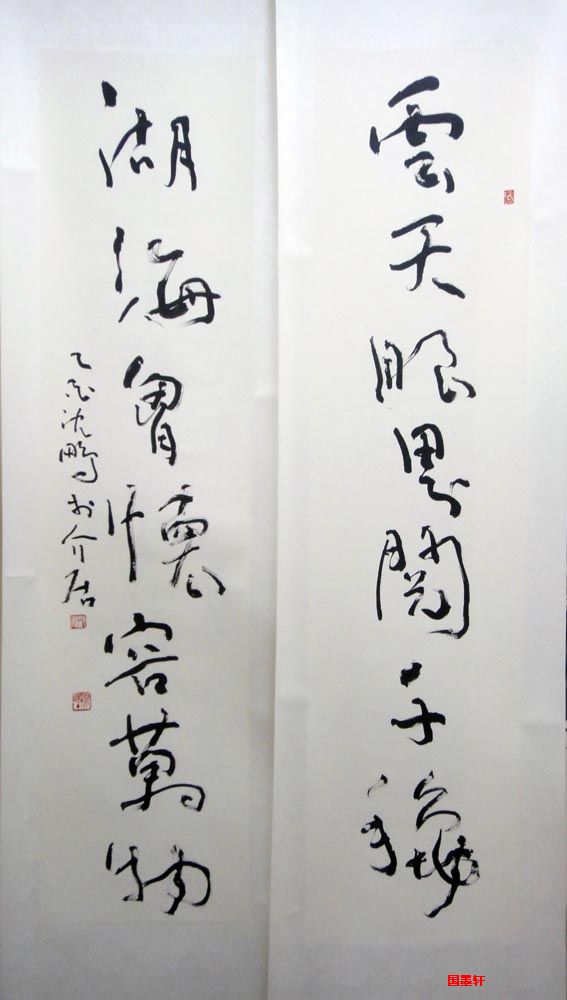 雲天眼界閱千穐
湖海胷懷容萬物
乙亥沈鵬於介居
国墨轩